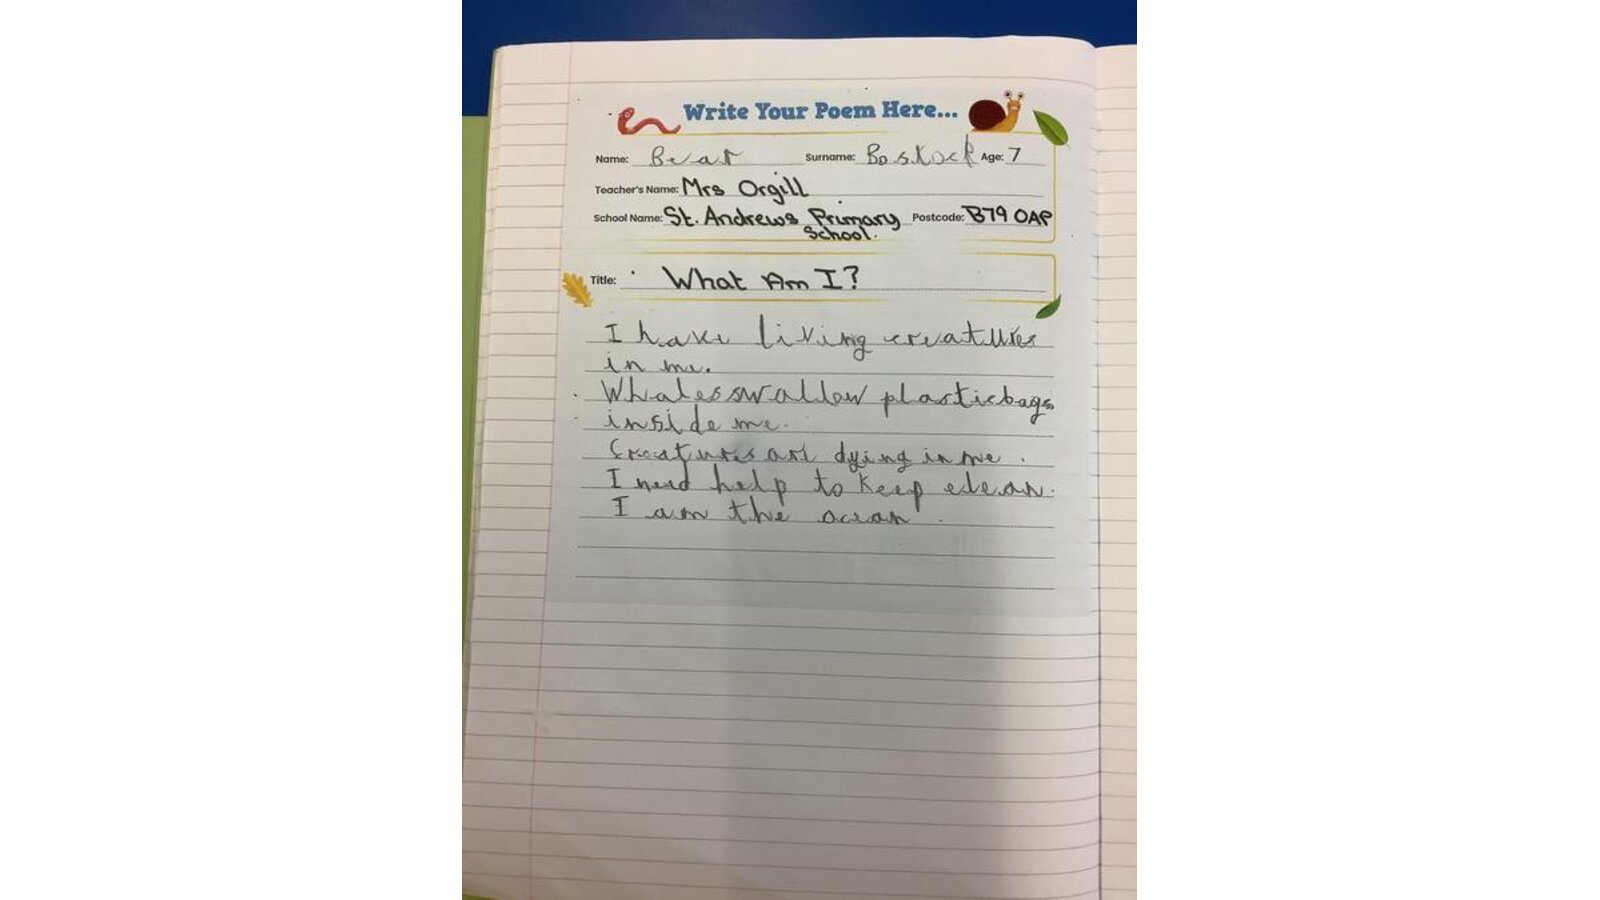 Write Your Poem Here...
Name: Bear Surname: Bostock Age: 7
Teacher's Name: Mrs Orgill
School Name: St. Andrews Primary School. Postcode: B79 0AP
Title: What Am I?
I have living creatures
in me.
Whales swallow plastic bags
inside me.
Creatures are dying in me.
I need help to keep clean.
I am the ocean.